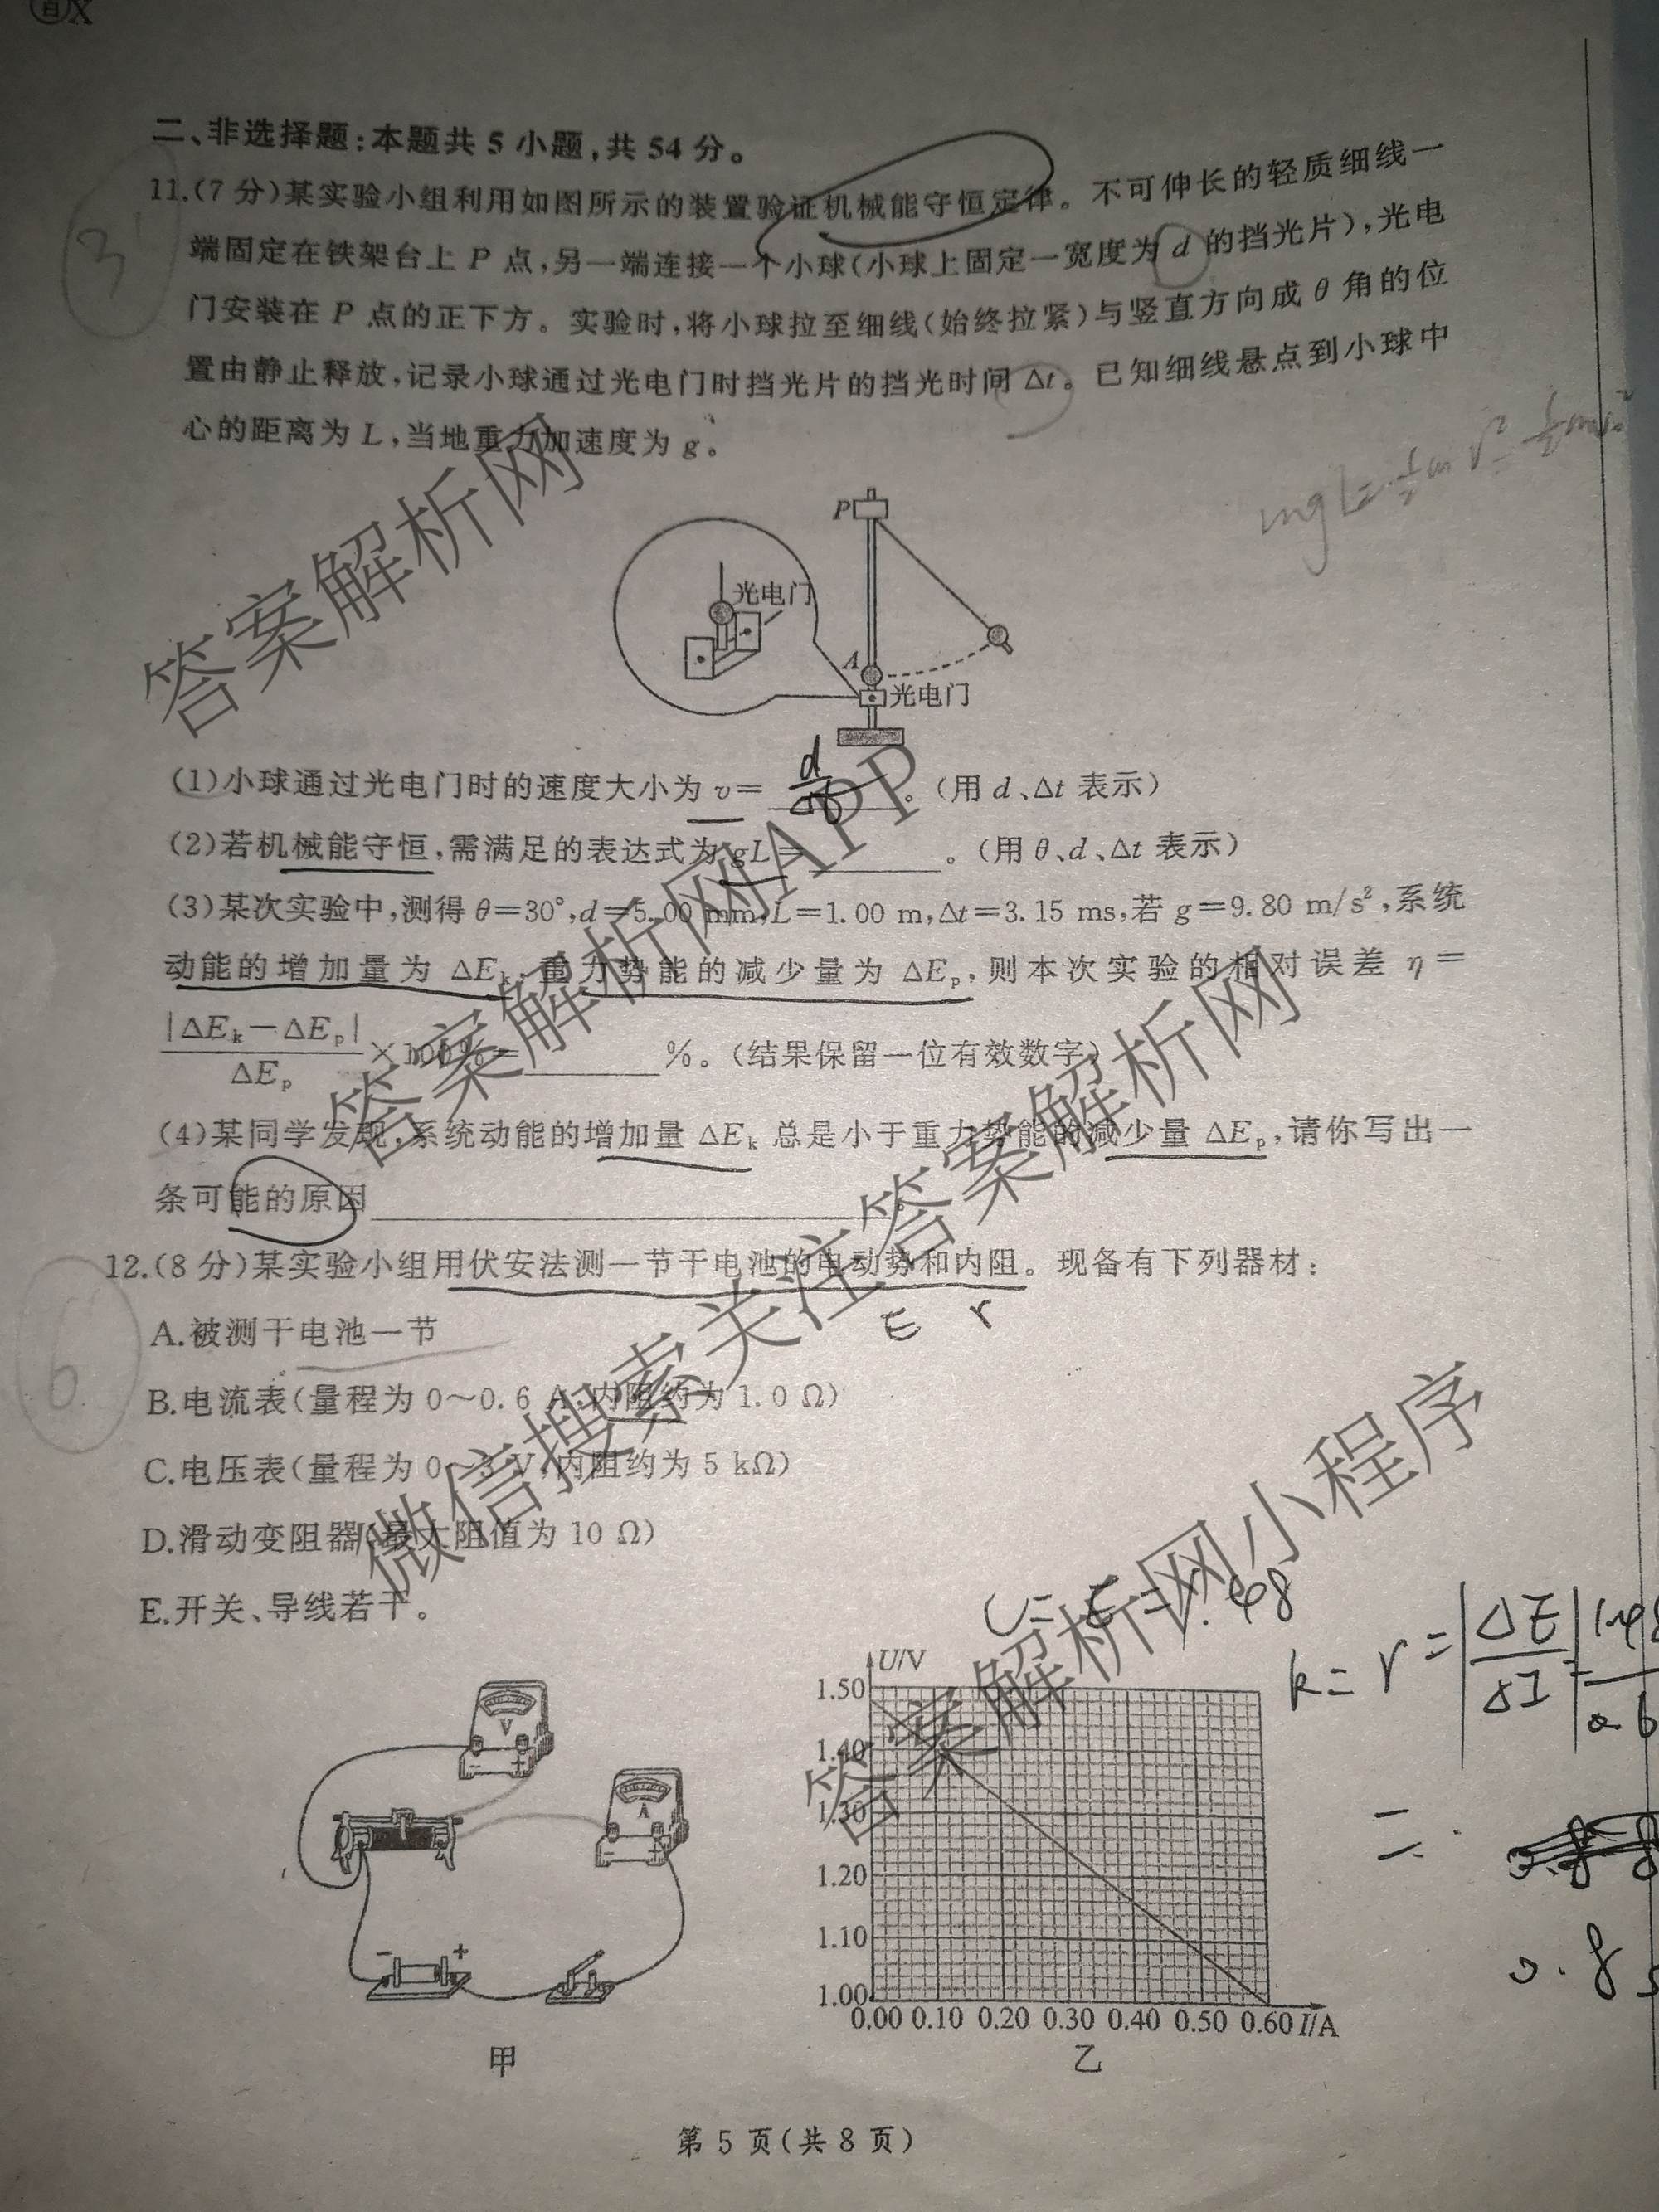 二、非选择题:本题共 5 小题,共 54 分。
11.(7 分)某实验小组利用如图所示的装置验证机械能守恒定律。不可伸长的轻质细线一
端固定在铁架台上 P 点,另一端连接一个小球(小球上固定一宽度为 d 的挡光片),光电
门安装在 P 点的正下方。实验时,将小球拉至细线(始终拉紧)与竖直方向成 θ 角的位
置由静止释放,记录小球通过光电门时挡光片的挡光时间 Δt。已知细线悬点到小球中
心的距离为 L,当地重力加速度为 g。
P
光电门
A
光电门
(1)小球通过光电门时的速度大小为 v=______。(用 d、Δt 表示)
(2)若机械能守恒,需满足的表达式为 gL=______。(用 θ、d、Δt 表示)
(3)某次实验中,测得 θ=30°,d=5.00 mm,L=1.00 m,Δt=3.15 ms,若 g=9.80 m/s²,系统
动能的增加量为 ΔEₖ,重力势能的减少量为 ΔEₚ,则本次实验的相对误差 η=
|ΔEₖ-ΔEₚ|/ΔEₚ×100%=______%。(结果保留一位有效数字)
(4)某同学发现,系统动能的增加量 ΔEₖ 总是小于重力势能的减少量 ΔEₚ,请你写出一
条可能的原因______。
12.(8 分)某实验小组用伏安法测一节干电池的电动势和内阻。现备有下列器材:
E r
A.被测干电池一节
B.电流表(量程为 0~0.6 A,内阻约为 1.0 Ω)
C.电压表(量程为 0~3 V,内阻约为 5 kΩ)
D.滑动变阻器(最大阻值为 10 Ω)
E.开关、导线若干。
V
A
- +
甲
U/V
1.50
1.40
1.30
1.20
1.10
1.00
0.00 0.10 0.20 0.30 0.40 0.50 0.60 I/A
乙
第 5 页(共 8 页)
答案解析网
答案解析网APP
微信搜索关注答案解析网
答案解析网小程序